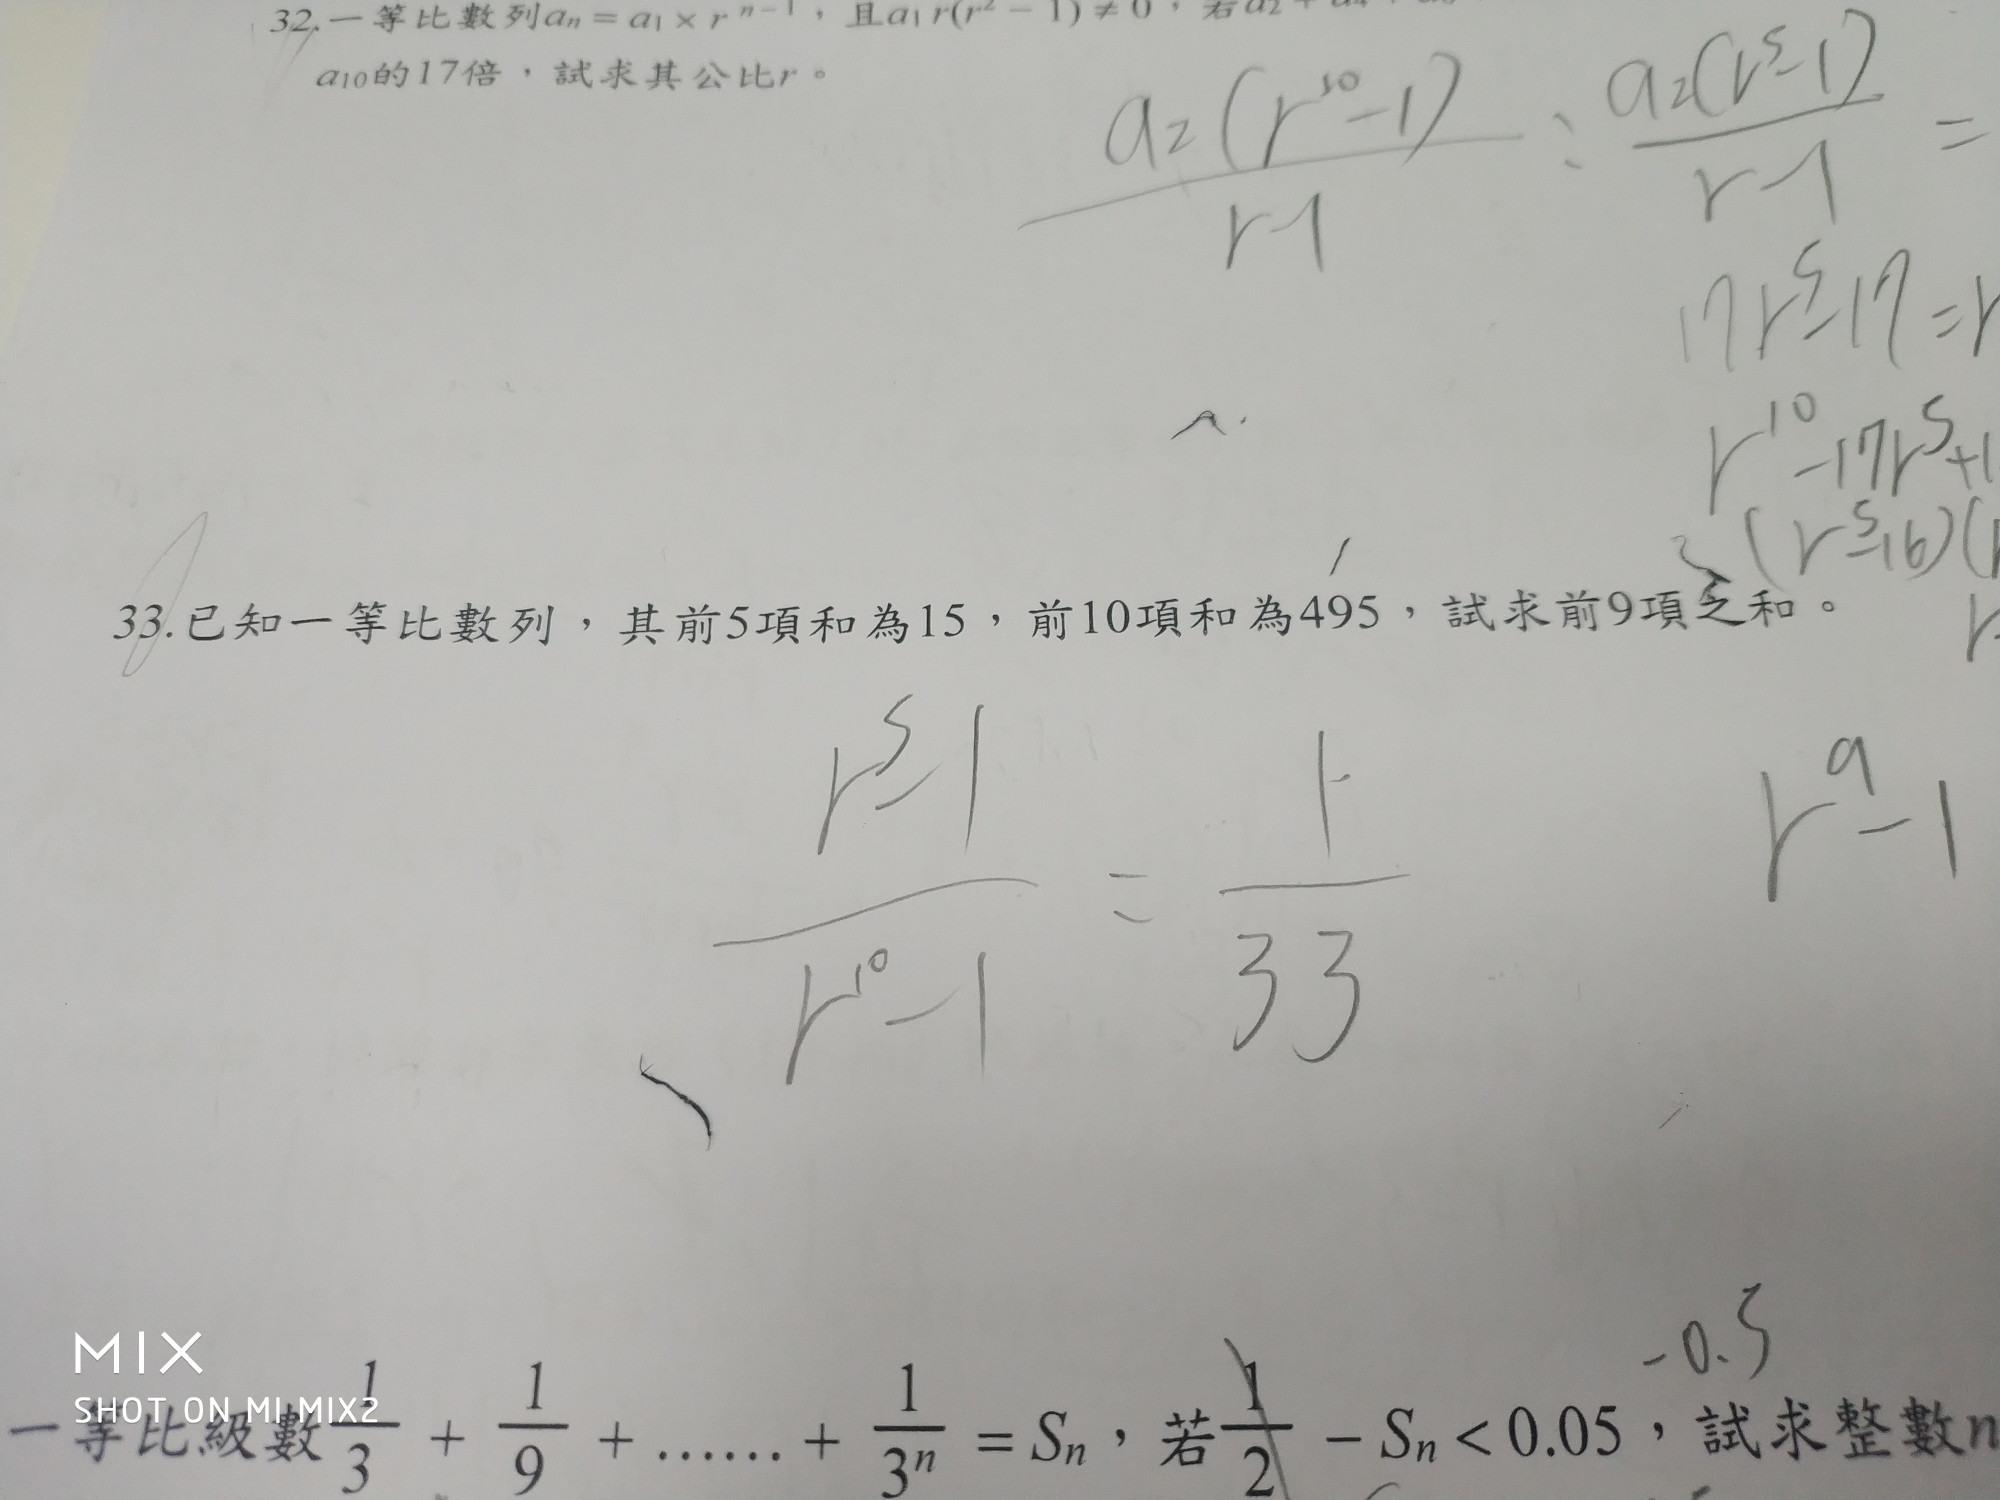 32.一等比數列aₙ = a₁ × r ⁿ⁻¹，且a₁ r(r² − 1) ≠ 0，若a₂ +
a₁₀的17倍，試求其公比r。
a₂(r¹⁰−1)/r−1 : a₂(r⁵−1)/r−1 =
17r⁵−17 = r
r¹⁰−17r⁵+1
(r⁵−16)(r
33.已知一等比數列，其前5項和為15，前10項和為495，試求前9項之和。
r⁵−1/r¹⁰−1 = 1/33
r⁹−1
−0.5
一等比級數1/3 + 1/9 + …… + 1/3ⁿ = Sₙ，若1/2 − Sₙ < 0.05，試求整數n
MIX
SHOT ON MI MIX2